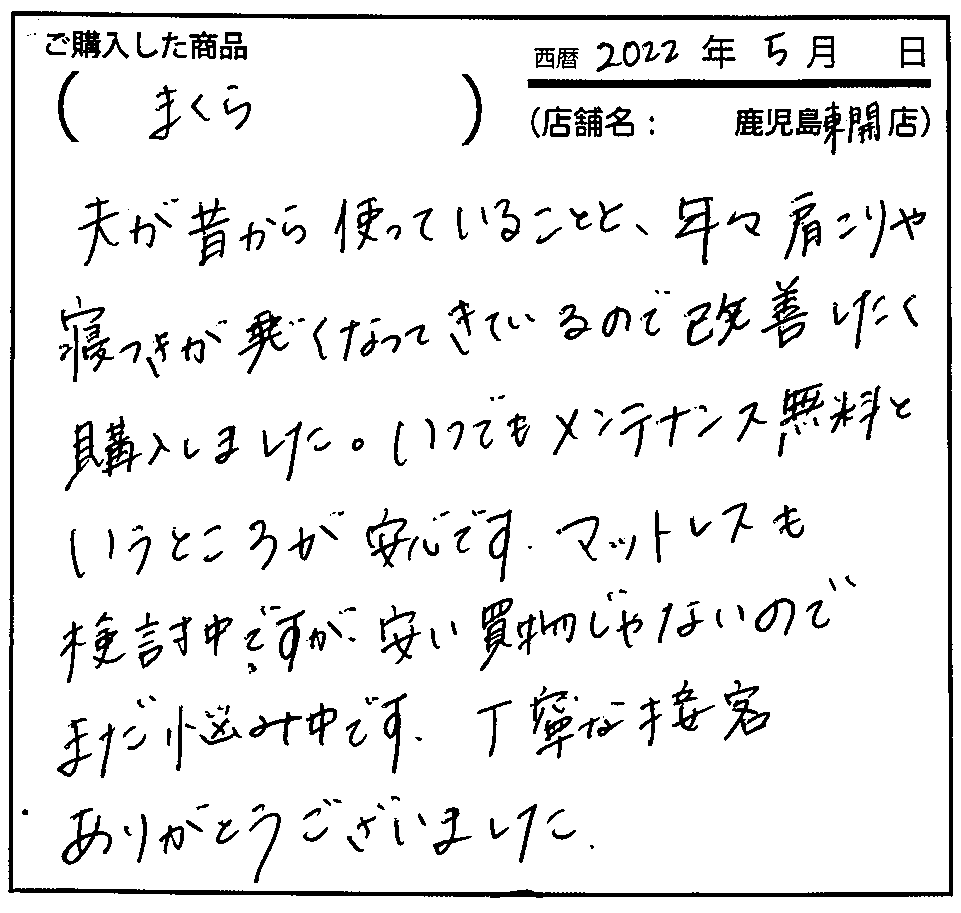 ご購入した商品
( まくら )
西暦 2022 年 5 月 日
(店舗名： 鹿児島東開店)
夫が昔から使っていることと、年々肩こりや
寝つきが悪くなってきているので改善したく
購入しました。いつでもメンテナンス無料と
いうところが安心です. マットレスも
検討中ですが、安い買物じゃないので
まだ悩み中です. 丁寧な接客
ありがとうございました.